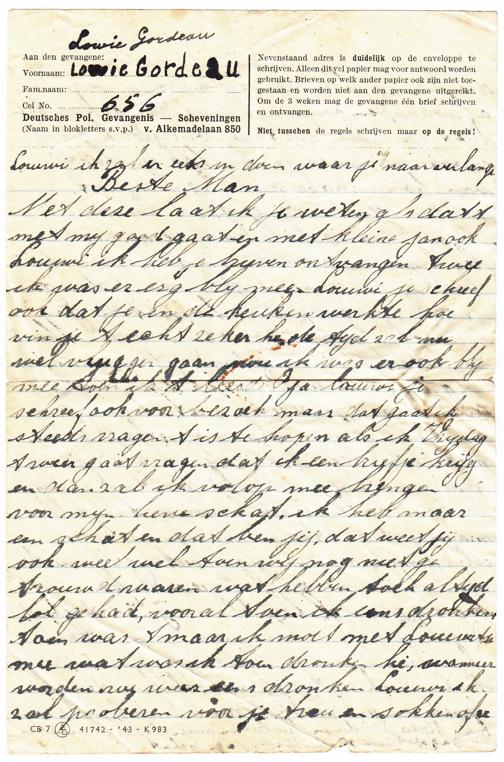 Lowie Gordeau
Aan den gevangene:
Voornaam: Lowie Gordeau
Fam.naam:
Cel No. 656
Deutsches Pol. Gevangenis — Scheveningen
(Naam in blokletters s.v.p.) v. Alkemadelaan 850
Nevenstaand adres is duidelijk op de enveloppe te
schrijven. Alleen dit vel papier mag voor antwoord worden
gebruikt. Brieven op welk ander papier ook zijn niet toe-
gestaan en worden niet aan den gevangene uitgereikt.
Om de 3 weken mag de gevangene één brief schrijven
en ontvangen.
Niet tusschen de regels schrijven maar op de regels!
Louwi ik zal er eets in doen waar je naar verlangt
Beste Man
Met deze laat ik je weten als dat t
met my goed gaat en met kleine jan ook
Louwi ik heb je brieven ontvangen twee
ik was er erg bly mee Louwi je schreef
ook dat je in de keuken werkte hoe
vin je t, echt zeker he de tyd zal nu
wel vlugger gaan nou ik was er ook bly
mee Ja Louwi je
schreef ook voor bezoek maar dat gaat ik
steeds vragen t is te hopen als ik Vrydag
t weer gaat vragen dat ik een briefje kryg
en dan zal ik volop mee brengen
voor myn lieve schat, ik heb maar
een schat en dat ben jij, dat weet jij
ook weel wel toen wij nog niet ge
trouwd waren wat hebben toch altyd
lol gehad, vooral toen ik eens dronken
toen was t maar ik moet met Louwi
mee wat was ik toen dronken he, wanneer
worden wy weer eens dronken Louwi ik
zal proberen voor je trui en sokken of
CB 7 41742 - '43 - K 983